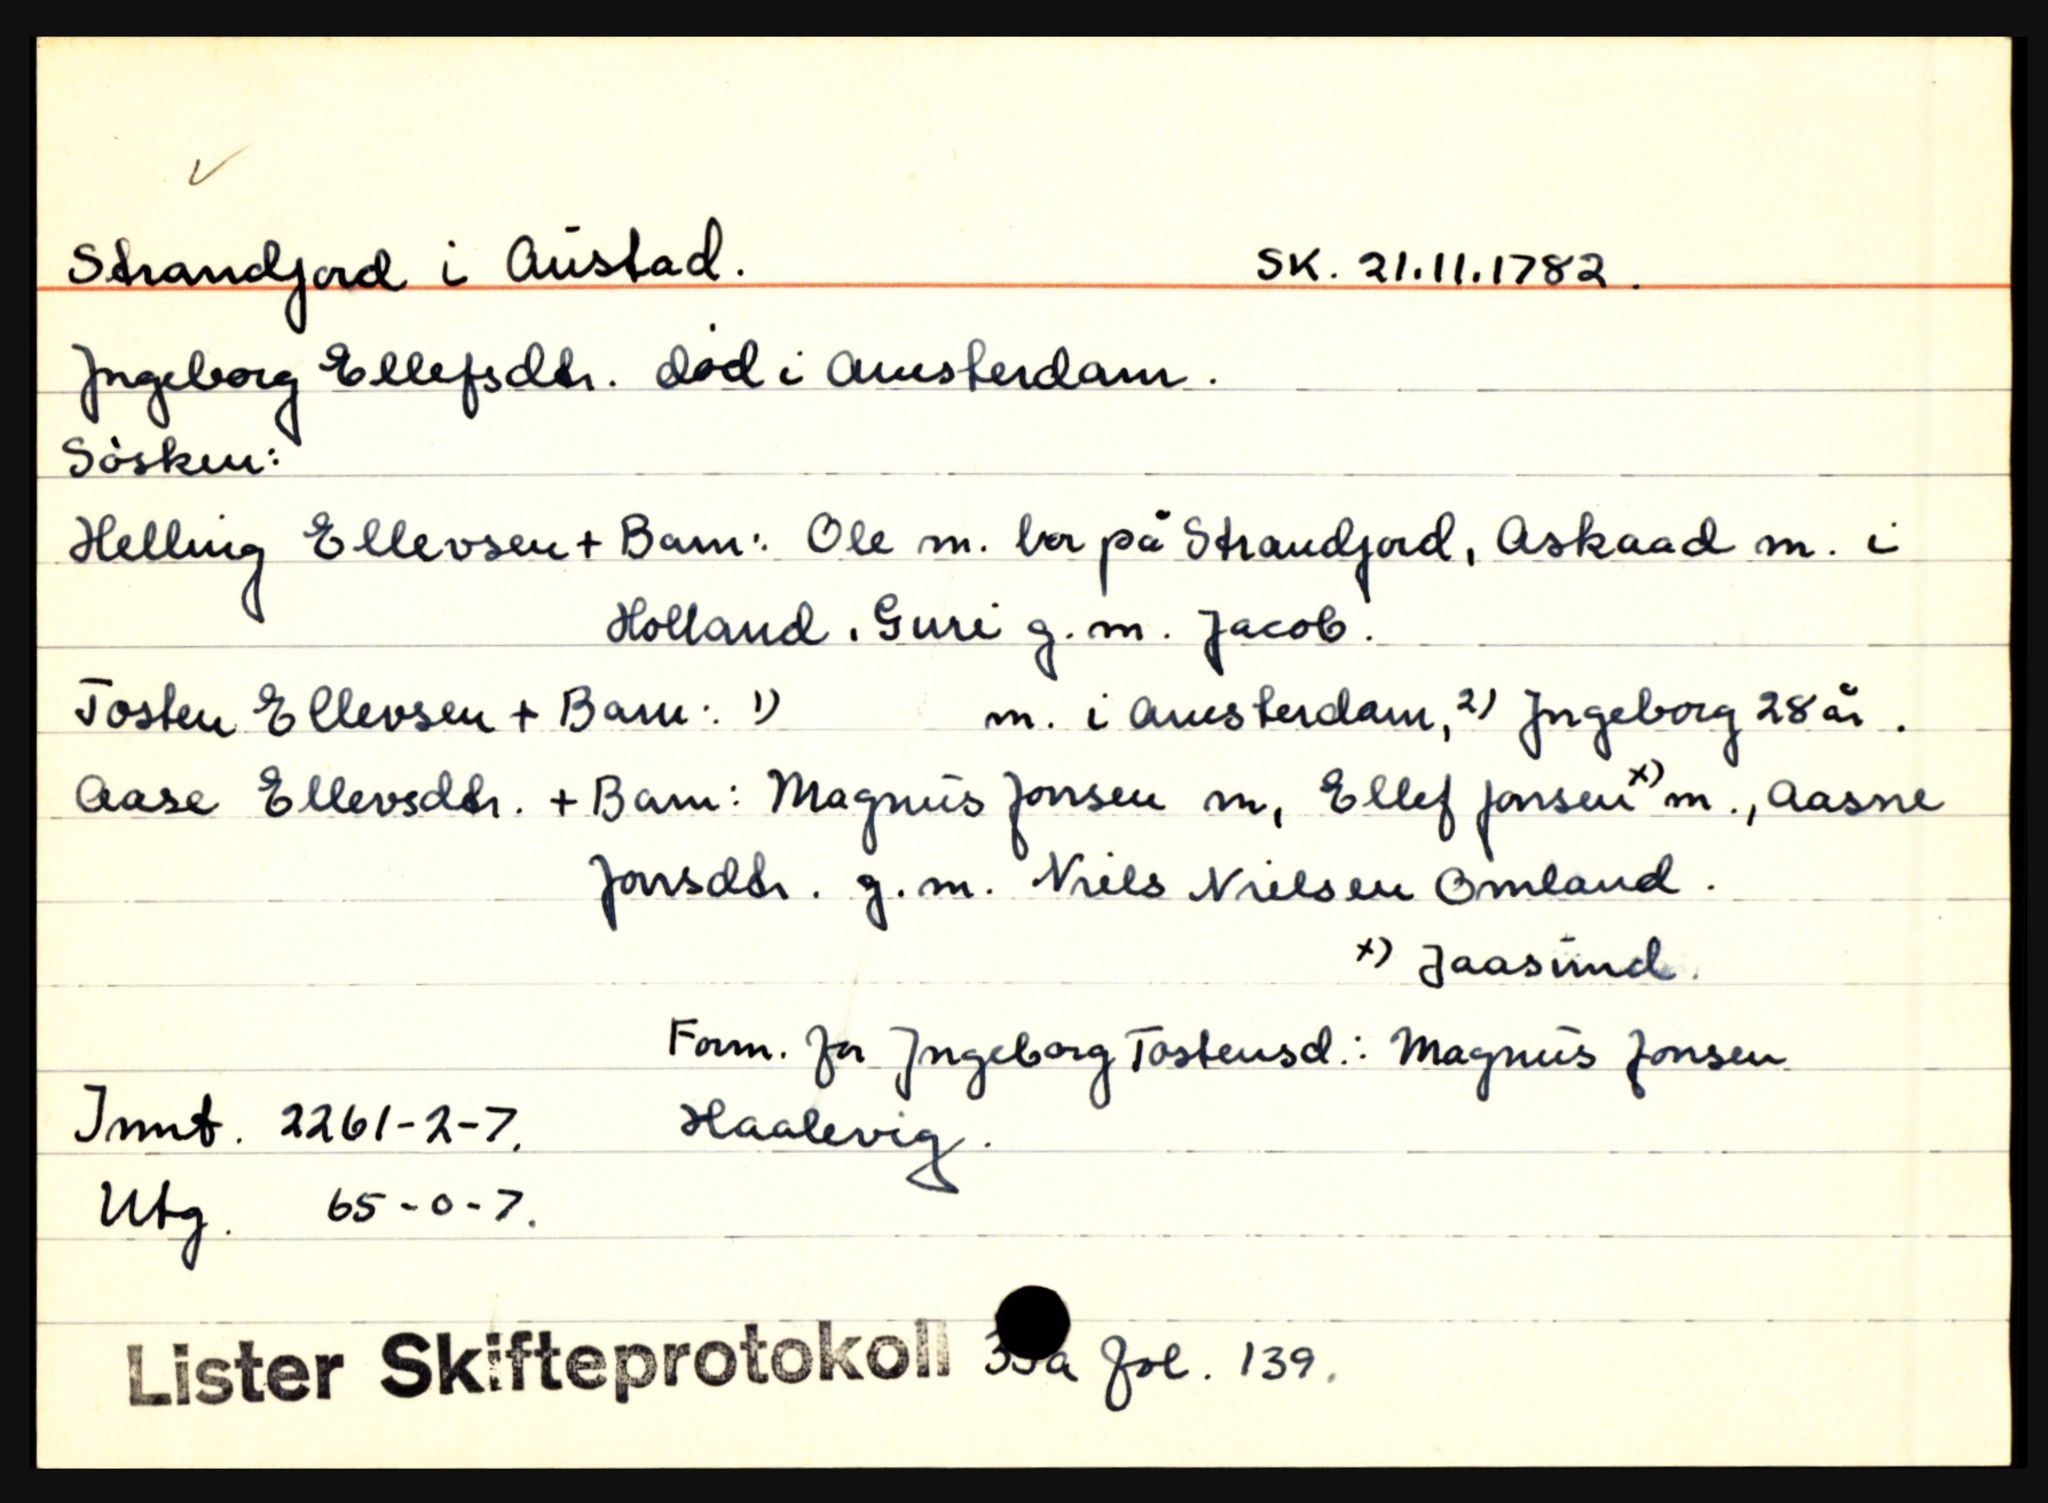 Strandjord i Austad. SK. 21.11.1782.
Ingeborg Ellefsdtr. død i Amsterdam.
Søsken:
Helling Ellevsen + Barn: Ole m. bor på Strandjord, Askaad m. i
Holland, Guri g.m. Jacob.
Tosten Ellevsen + Barn: 1) m. i Amsterdam, 2) Ingeborg 28 år.
Aase Ellevsdtr. + Barn: Magnus Jonsen m, Ellef Jonsen x) m., Aasne
Jonsdtr. g.m. Niels Nielsen Omland.
x) Jaasund.
Form. for Ingeborg Tostensd.: Magnus Jonsen
Innt. 2261-2-7. Haalevig.
Utg. 65-0-7.
Lister Skifteprotokoll fol. 139.